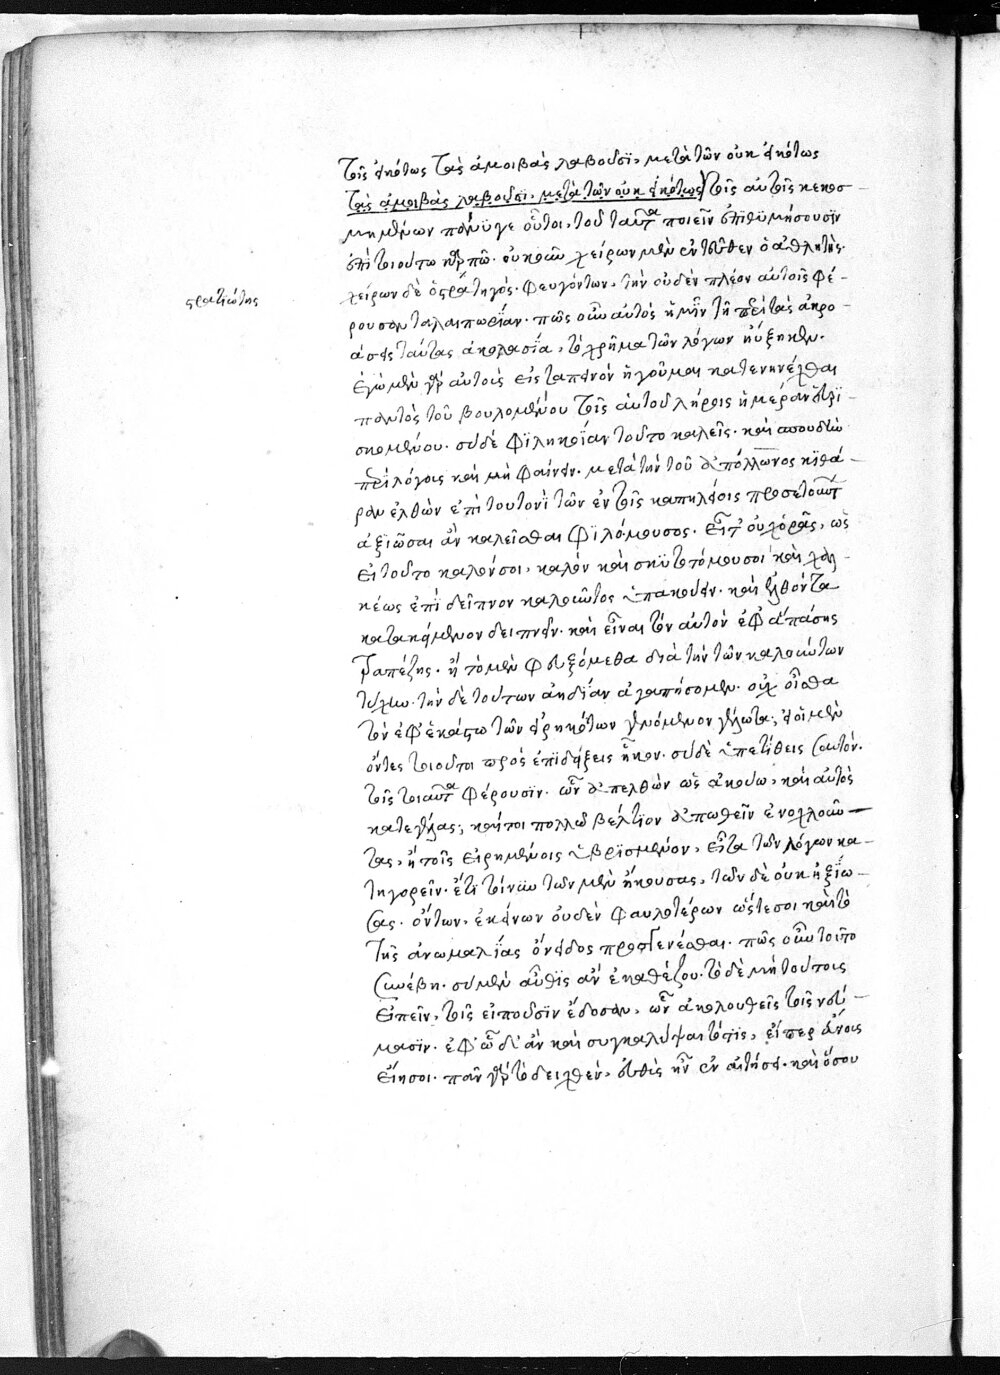 τοῖς εἰκότως τὰς ἀμοιβὰς λαβοῦσϊ, μετὰ τῶν οὐκ εἰκότως
τὰς ἀμοιβὰς λαβοῦσϊ, μετὰ τῶν οὐκ εἰκότως τοῖς αὐτοῖς κεκοσ-
μημένων πάνϋγε οὗτοι, τοῦ ταῦτα ποιεῖν ἐπϊθϋμήσουσϊν
ἐπὶ τοιούτω γὰρ πῶ. οὐκοῦν χείρων μὲν ἐντεῦθεν ὁ ἀθλητὴς.
στρατιώτης
χείρων δὲ ὁ στρατηγὸς. φευγόντων, τὴν οὐδὲν πλέον αὐτοῖς φέ-
ρουσαν ταλαιπωρΐαν. πῶς οὖν αὐτὸς ἡμῖν τῇ περὶ τὰς ἀκρο-
άσεις ταύτας ἀκολασΐα, τὸ χρῆμα τῶν λόγων ηὔξηκεν.
ἐγὼ μὲν γὰρ αὐτοὺς εἰς ταπεινὸν ἡγοῦμαι κατενηνέχθαι
παντὸς τοῦ βουλομένου τοῖς αὑτοῦ λήροις ἡμέραν
σκομένου. σὺ δὲ φϊληκοΐαν τοῦτο καλεῖς. καὶ σπουδὴν
περὶ λόγοις καὶ μὴ φαίνειν. μετὰ τὴν τοῦ ἀπόλλωνος κϊθά-
ραν ἐλθὼν ἐπὶ τουτονῒ τῶν ἐν τοῖς καπηλείοις προσετοῦντ
ἀξιῶσαι ἂν καλεῖσθαι φϊλόμουσος. εἶτ' οὐχ ὁρᾶς, ὡς
εἰ τοῦτο καλόν σοι, καλὸν καὶ σκϋτοτόμου σοι καὶ χαλ-
κέως ἐπῒ δεῖπνον καλοῦντος ὑπακούειν. καὶ ἐλθόντα
κατακείμενον δειπνεῖν. καὶ εἶναι τὸν αὐτὸν ἐφ' ἁπάσης
τραπέζης. ἢ τὸ μὲν φευξόμεθα διὰ τὴν τῶν καλούντων
τύχην. τὴν δὲ τούτων ἀηδίαν ἀγαπήσομεν. οὐχ οἶσθα
τὸν ἐφ' ἑκάστω τῶν εἰρηκότων γενόμενον γέλωτα; εἰ οἱ μὲν
ὄντες τοιοῦτοι πρὸς ἐπϊδείξεις ἧκον. σὺ δὲ ὑπετίθεις σαυτόν.
τοῖς τοιαῦτα φέρουσϊν. ὧν ἀπελθὼν ὡς ἀκούω, καὶ αὐτὸς
κατεγέλας; καίτοι πολλῶ βέλτϊον ἀπωθεῖν ἐνοχλοῦν-
τας, ἢ τοῖς εἰρημένοις ὑβρϊσμένον, εἶτα τῶν λόγων κα-
τηγορεῖν. ἔτϊ τοίνϋν τῶν μὲν ἤκουσας, τῶν δὲ οὐκ ἠξΐω-
σας. ὄντων, ἐκείνων οὐδὲν φαυλοτέρων ὥστε σοι καὶ τὸ
τῆς ἀνωμαλΐας ὄνειδος προσγενέσθαι. πῶς οὖν τοῦτο
συνέβη. σὺ μὲν αὖθϊς ἂν ἐκαθέζου. τὸ δὲ μὴ τούτοις
εἰπεῖν, τοῖς εἰποῦσϊν ἔδοσαν, ὧν ἀκολουθεῖς τοῖς νεύ-
μασϊν. ἐφ' ᾧ δι' ἂν καὶ συγκαλύψαι τόπϊς, εἴπερ ἄνοις
εἴησοι. πᾶν γὰρ τὸ δειχθὲν, εὐθὺς ἦν ἐν αἰτήσει. καὶ ὅσου